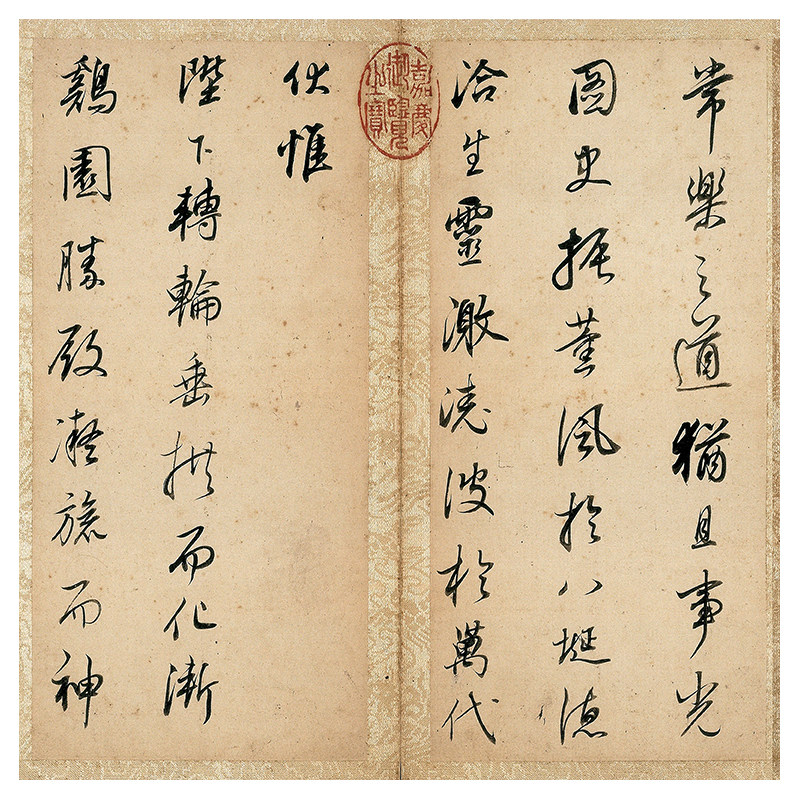 常樂之道猶且事光
圖史振薰風於八埏德
洽生靈激澆波於萬代
伏惟
陛下轉輪垂拱而化漸
鷄園勝殿凝旒而神
嘉慶御覽之寶